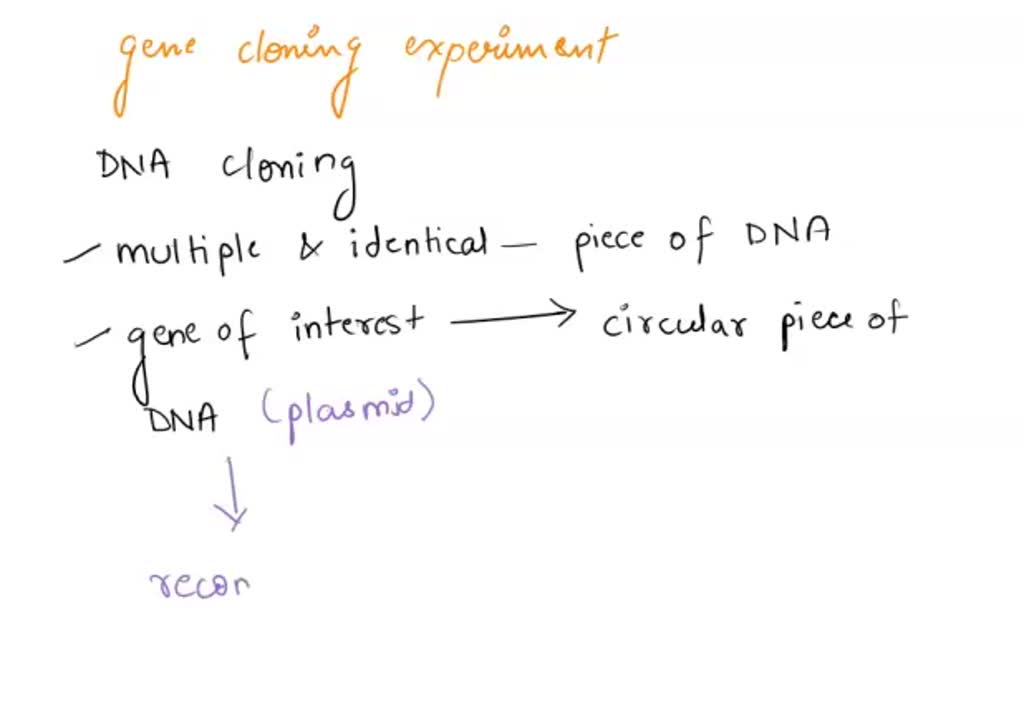 gene cloning experiment
DNA cloning
multiple & identical — piece of DNA
gene of interest → circular piece of
DNA (plasmid)
↓
recon